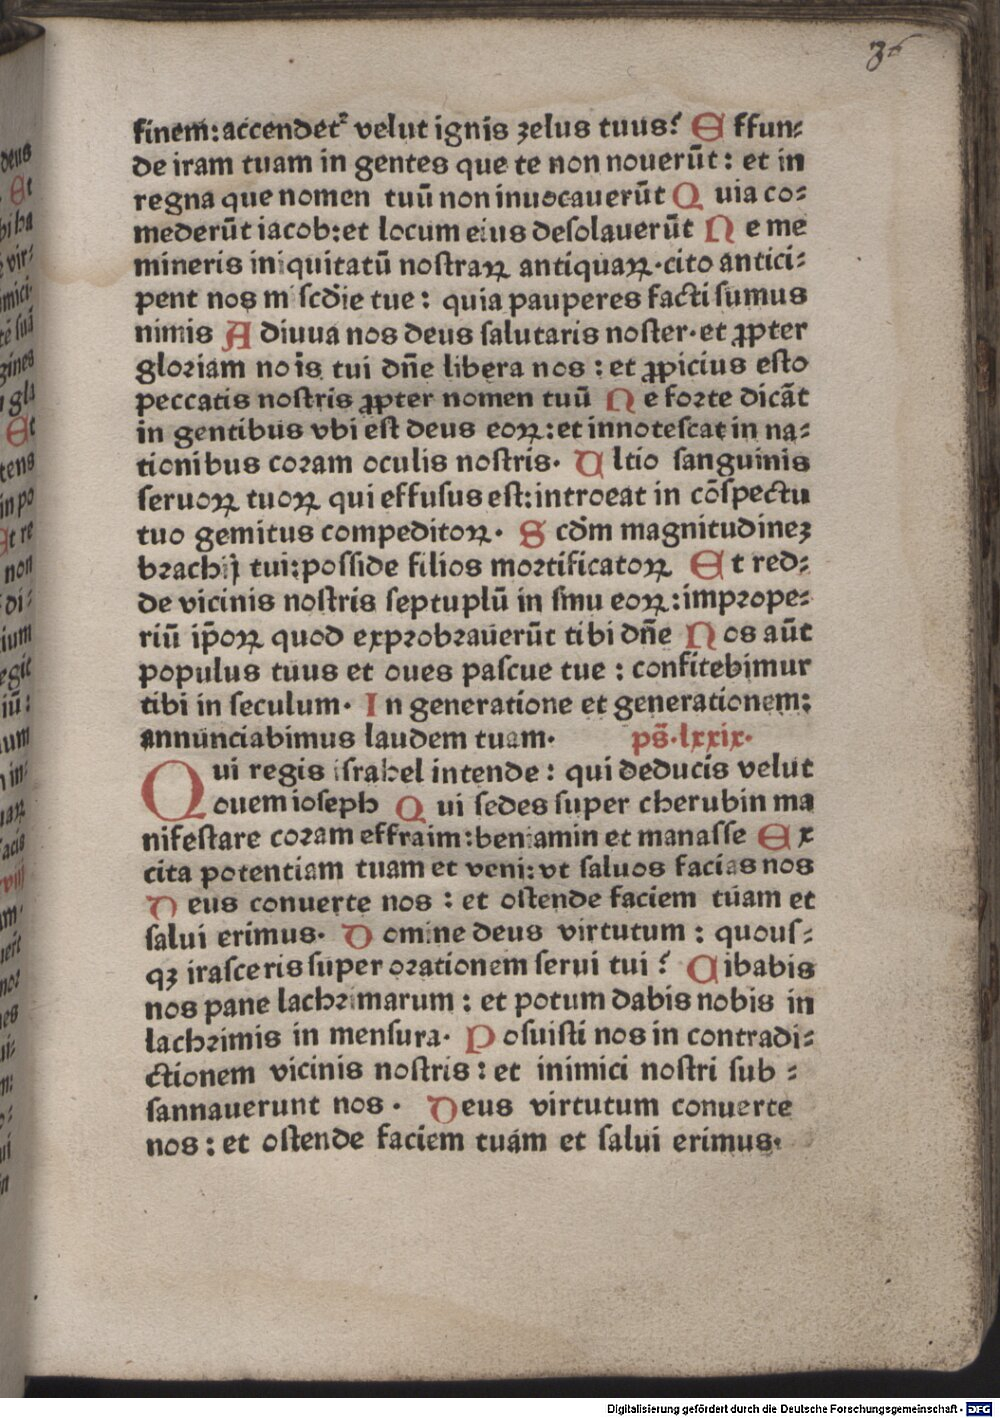 36
finem: accendetᷣ velut ignis ȝelus tuus? E ffun⸗
de iram tuam in gentes que te non nouerūt: et in
regna que nomen tuū non inuocauerūt Q uia co⸗
mederūt iacob: et locum eius deſolauerūt N e me
mineris iniquitatū noſtraꝝ antiquaꝝ· cito antici⸗
pent nos miſcd̄ie tue: quia pauperes facti ſumus
nimis A diuua nos deus ſalutaris noſter· et ꝓpter
gloꝛiam noīs tui dn̄e libera nos: et ꝓpicius eſto
peccatis noſtris ꝓpter nomen tuū N e foꝛte dicāt
in gentibus vbi eſt deus eoꝝ: et innoteſcat in na⸗
tionibus coꝛam oculis noſtris· U ltio ſanguinis
ſeruoꝝ tuoꝝ qui effuſus eſt: introeat in cōſpectu
tuo gemitus compeditoꝝ· S cd̄m magnitudineȝ
bꝛachij tui: poſſide filios moꝛtificatoꝝ E t red⸗
de vicinis noſtris ſeptuplū in ſinu eoꝝ: impꝛope⸗
riū ip̄oꝝ quod expꝛobꝛauerūt tibi dn̄e N os aūt
populus tuus et oues paſcue tue: confitebimur
tibi in ſeculum· I n generatione et generationem:
annunciabimus laudem tuam· pſ̄·lxxix·
Q ui regis iſrahel intende: qui deducis velut
ouem ioſeph Q ui ſedes ſuper cherubin ma
nifeſtare coꝛam effraim: beniamin et manaſſe E x
cita potentiam tuam et veni: vt ſaluos facias nos
D eus conuerte nos: et oſtende faciem tuam et
ſalui erimus· D omine deus virtutum: quouſ⸗
qȝ iraſceris ſuper oꝛationem ſerui tui? C ibabis
nos pane lachꝛimarum: et potum dabis nobis in
lachꝛimis in menſura· P oſuiſti nos in contradi⸗
ctionem vicinis noſtris: et inimici noſtri ſub⸗
ſannauerunt nos· D eus virtutum conuerte
nos: et oſtende faciem tuam et ſalui erimus·
Digitalisierung gefördert durch die Deutsche Forschungsgemeinschaft - DFG